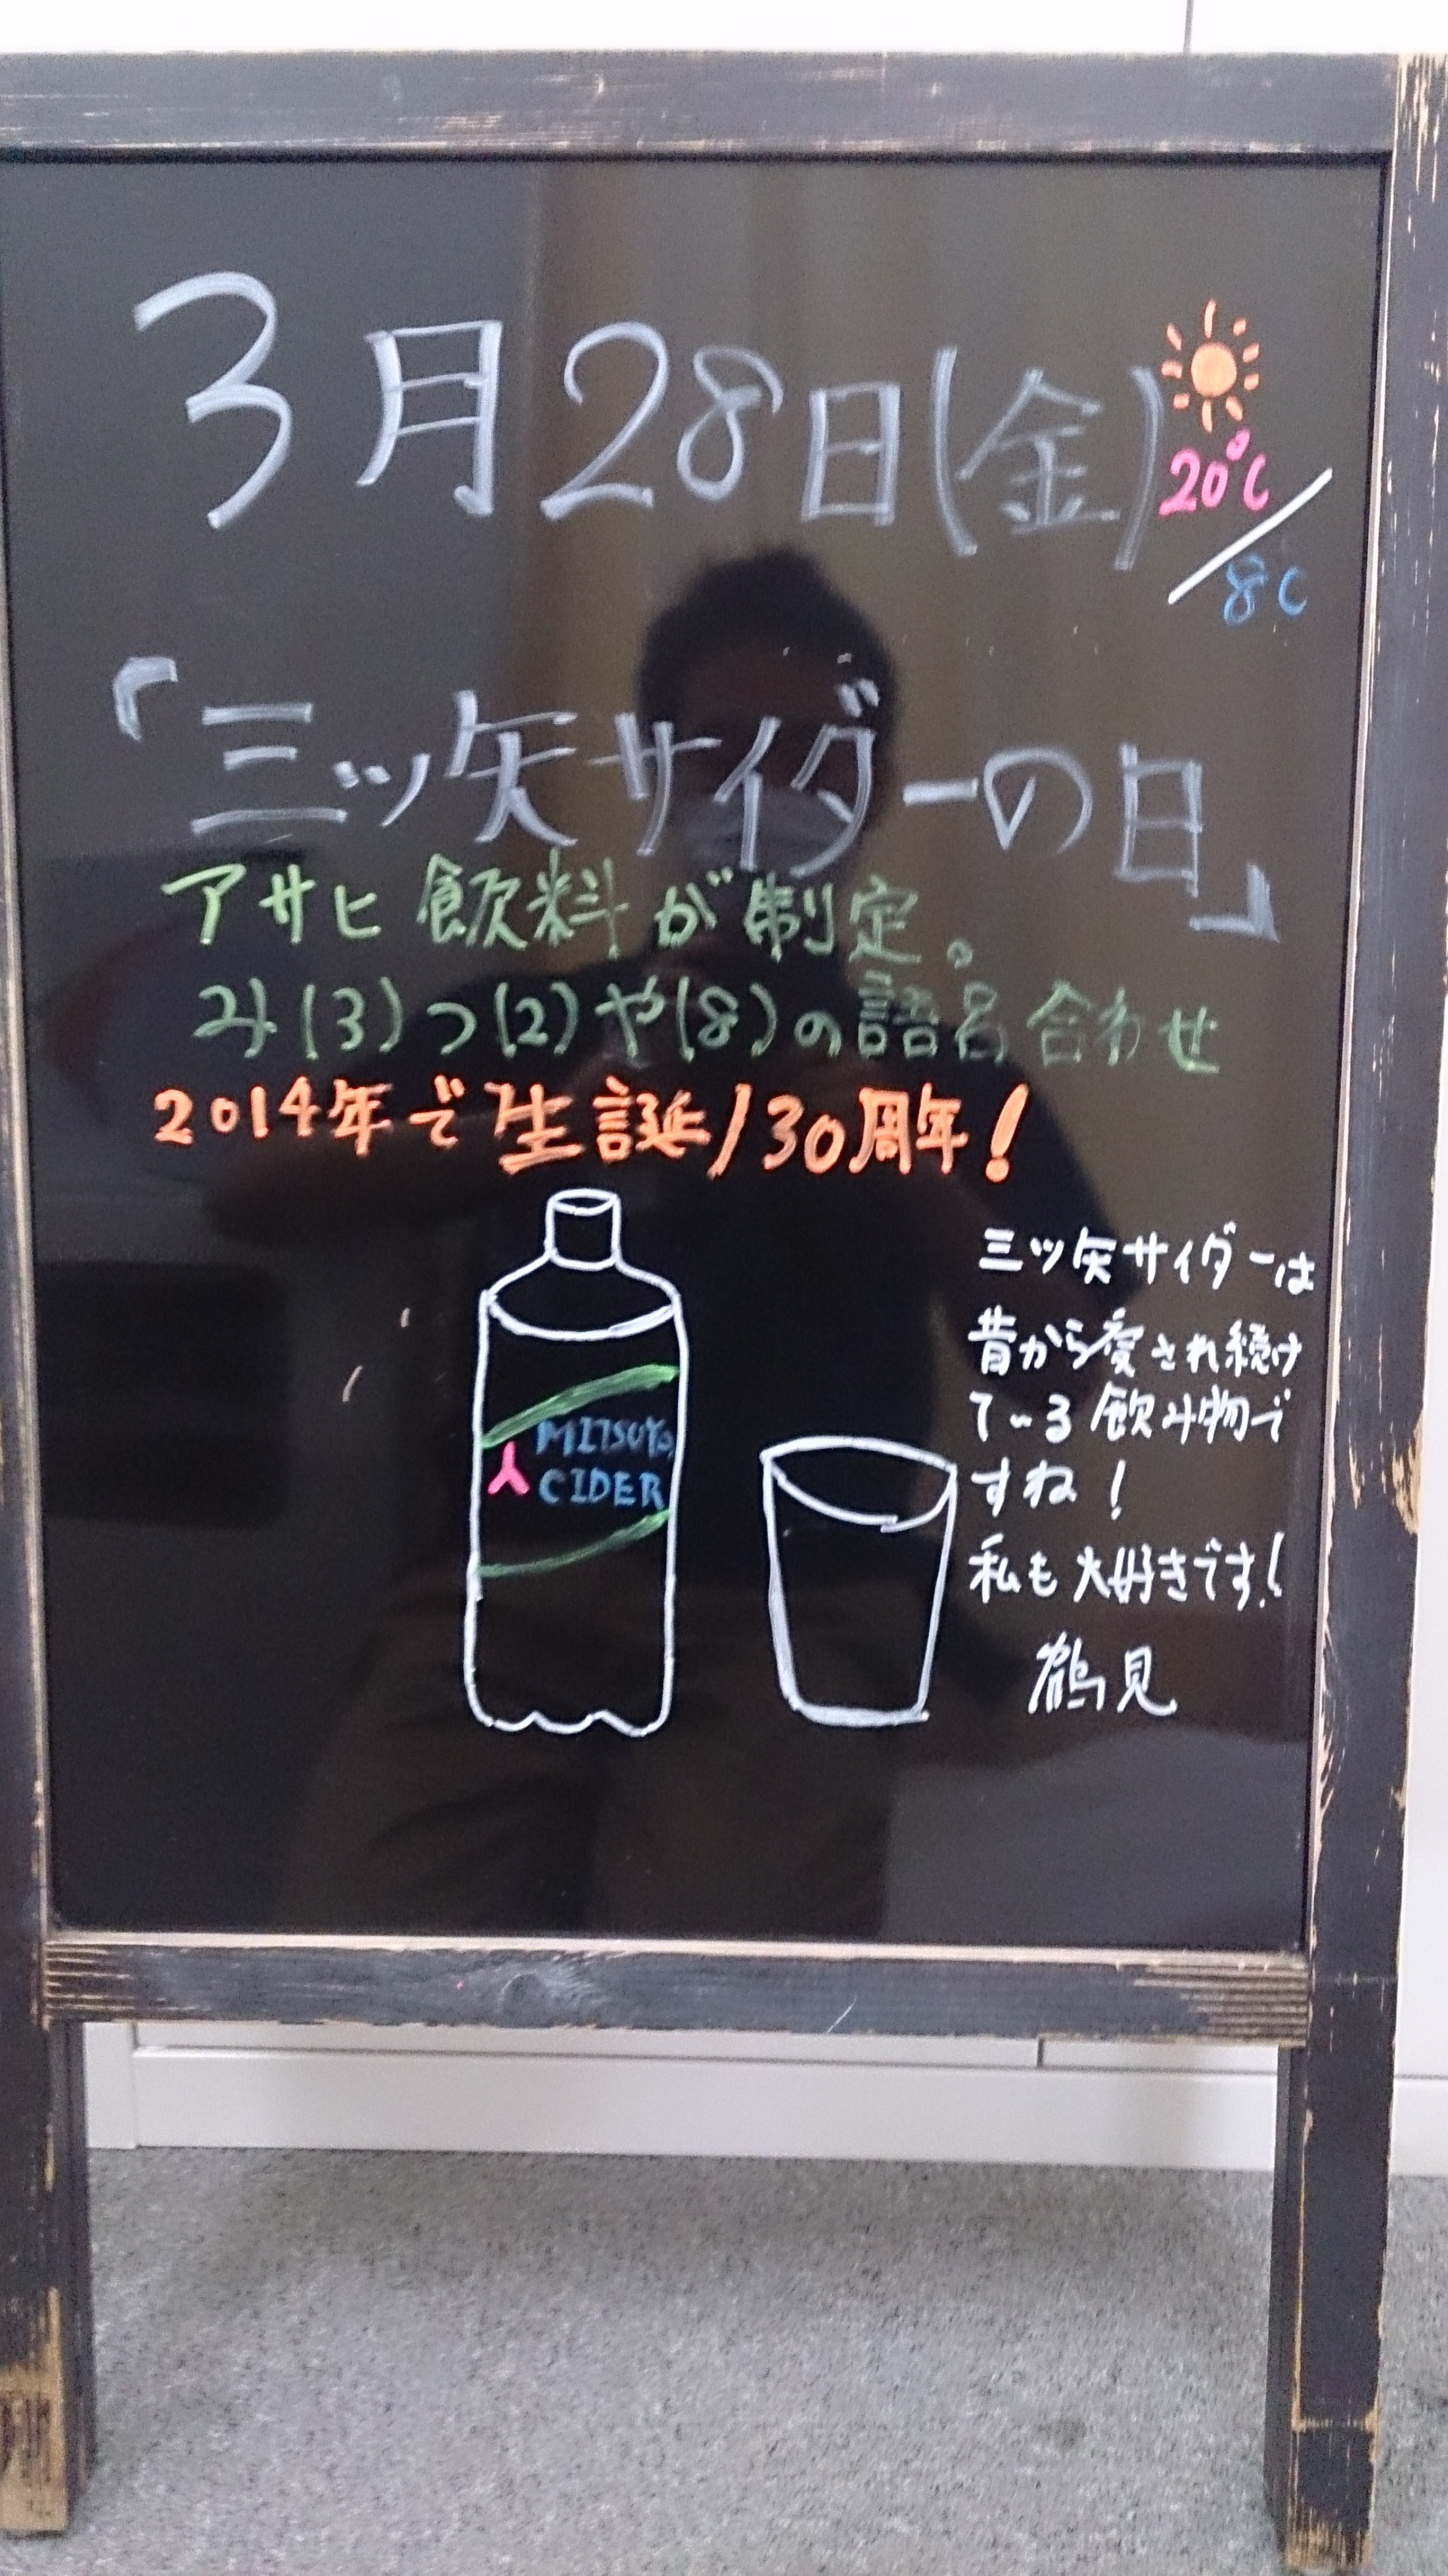 3月28日(金)
20℃
8C
「三ツ矢サイダーの日」
アサヒ飲料が制定。
み(3)つ(2)や(8)の語呂合わせ
2014年で生誕130周年!
MITSUYA
CIDER
三ツ矢サイダーは
昔から愛され続け
ている飲み物で
すね!
私も大好きです!
鶴見